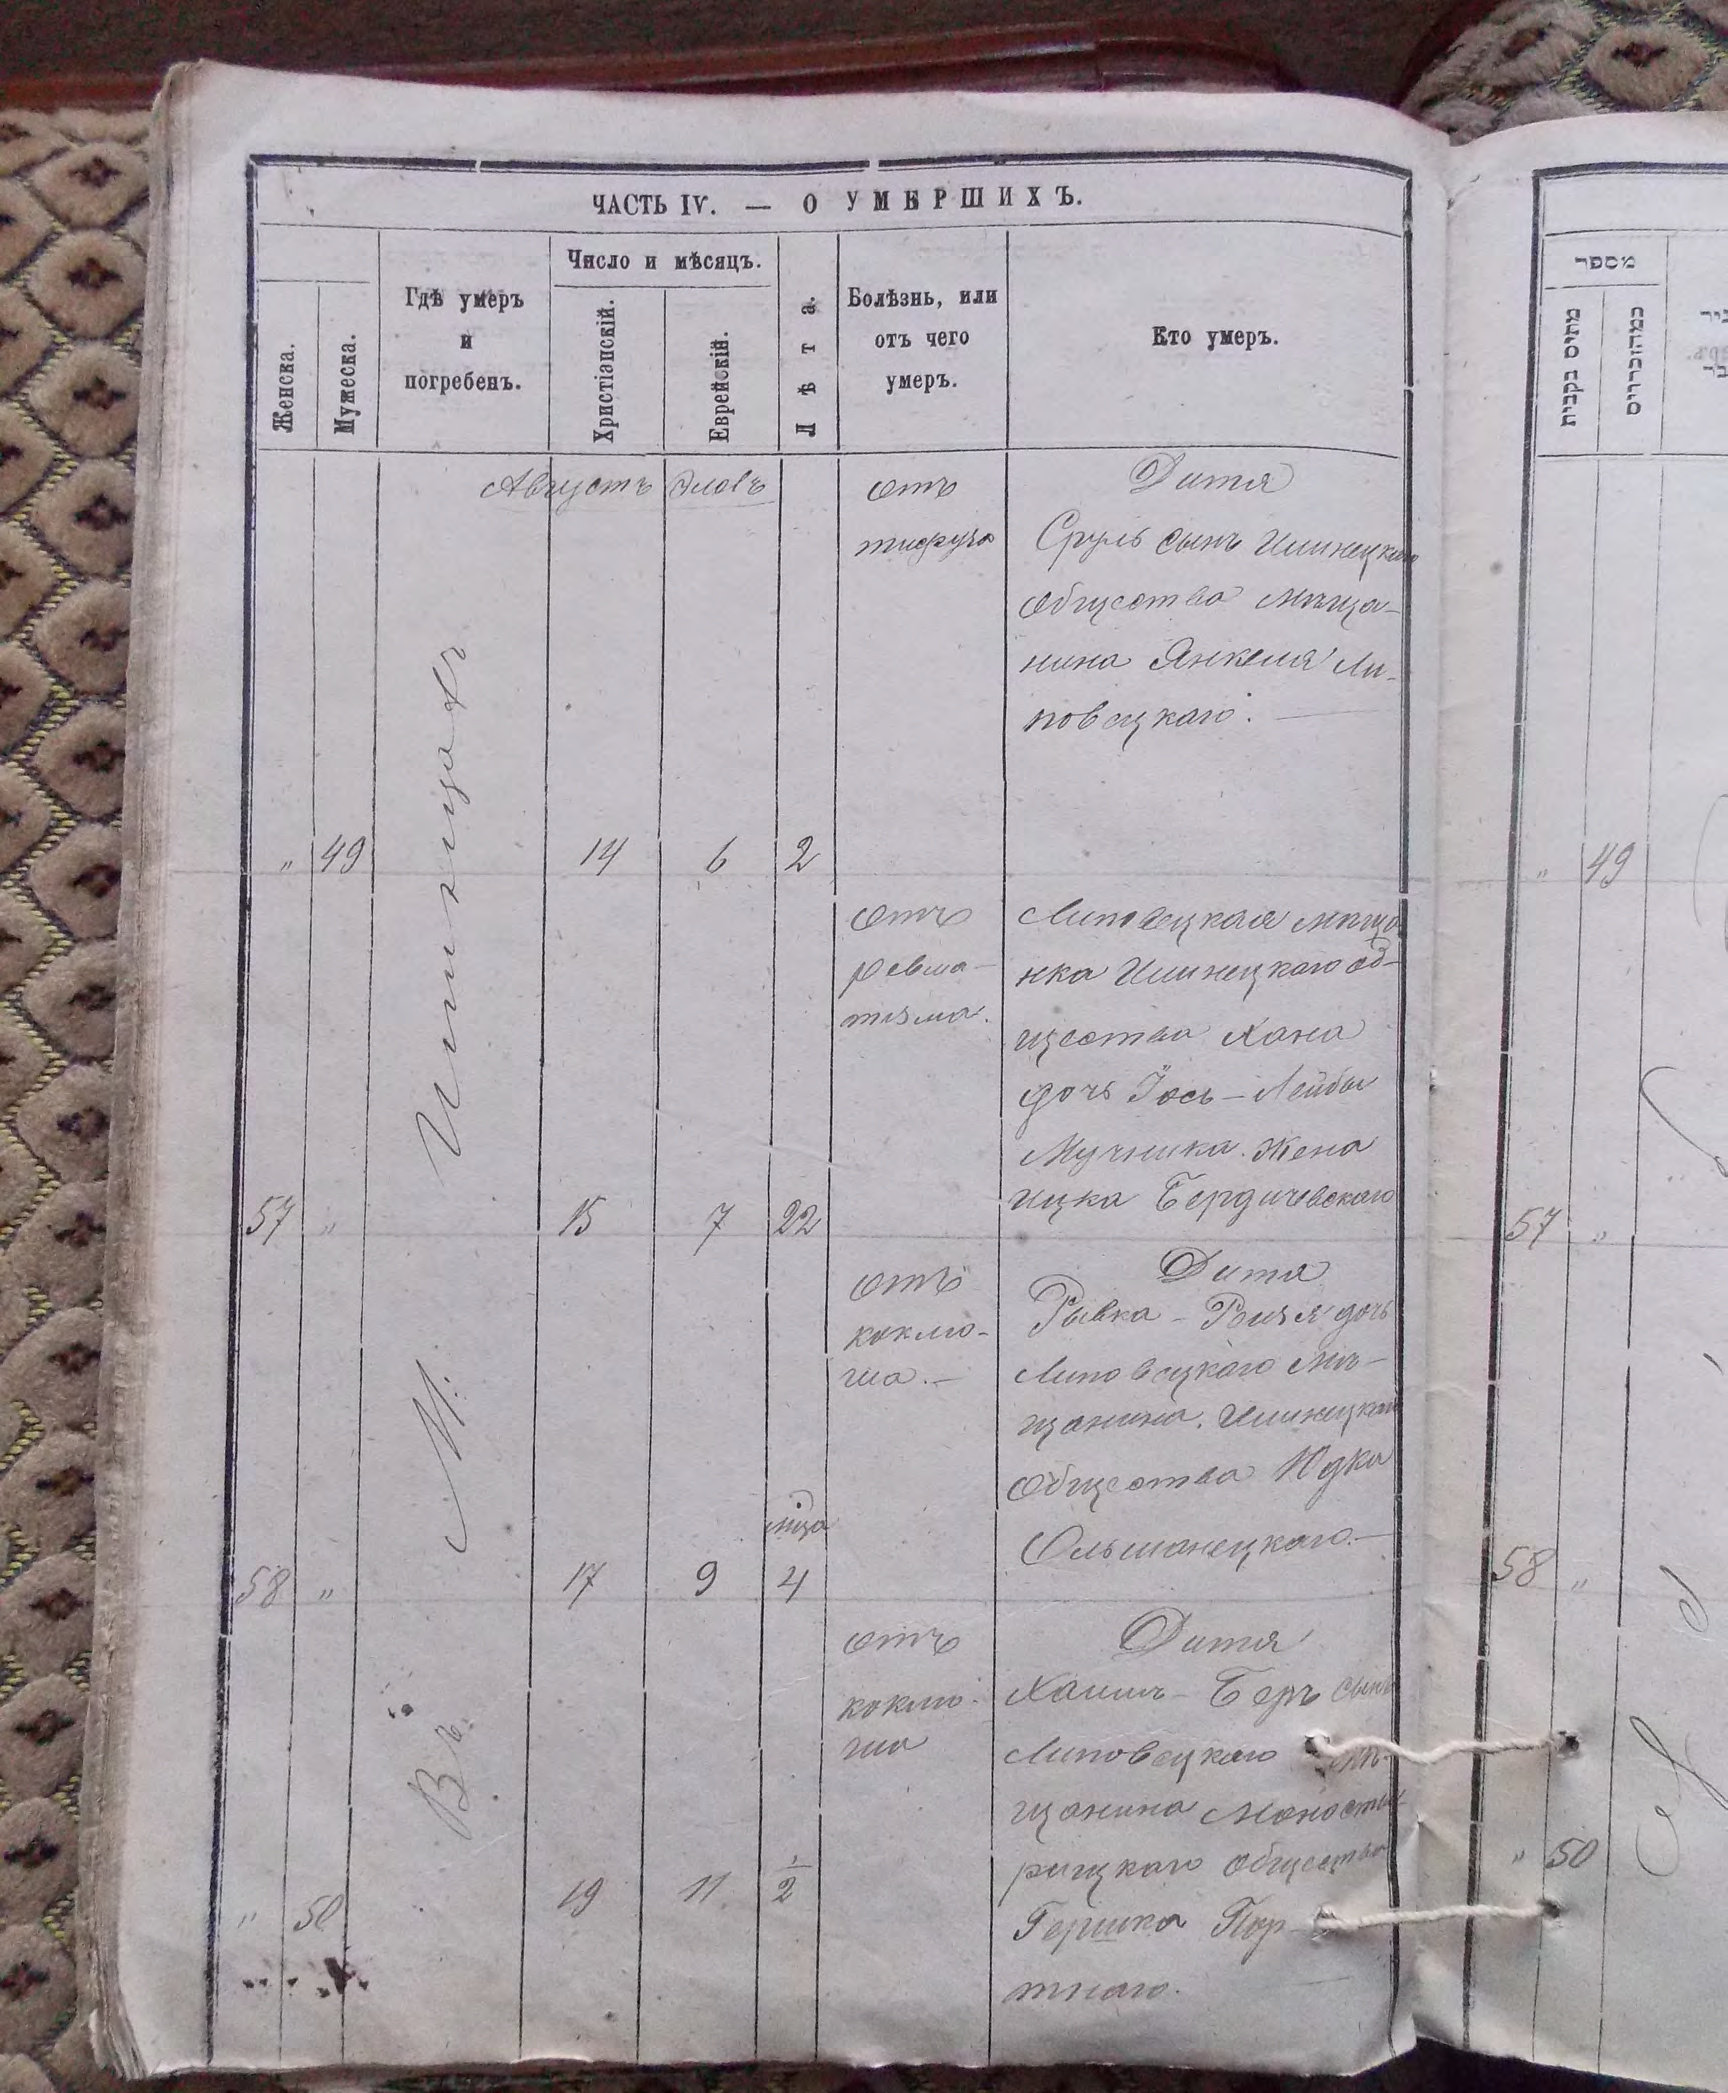 ЧАСТЬ IV. — О УМЕРШИХЪ.
Женска.
Мужеска.
Гдѣ умеръ
и
погребенъ.
Число и мѣсяцъ.
Христіанскій.
Еврейскій.
Лѣта.
Болѣзнь, или
отъ чего
умеръ.
Кто умеръ.
Августъ Эловъ
Въ М: Илинцахъ
отъ
тифуса
Дитя
Сруль сынъ Илинецкаго
общества мѣща-
нина Янкеля Ли-
повецкаго.
" 49 14 6 2
отъ
ревма-
тизма.
Липовецкая мѣща
нка Илинецкаго об-
щества Хана
дочь Іось-Лейбы
Мучника. Жена
Ицка Бердичевскаго
57 " 15 7 22
отъ
коклю-
ша.-
Дитя
Рывка-Ройзя дочь
Липовецкаго мѣ-
щанина. Илинецкаго
общества Юдка
Ольшанецкаго.-
мѣца
58 " 17 9 4
отъ
коклю-
ша
Дитя
Хаимъ-Беръ сынъ
Липовецкаго мѣ-
щанина Монасты-
рицкаго общества
Гершка Порт-
тнаго.
" 50 19 11 1/2
מספר
נקבות
" 49
57 "
58 "
" 50